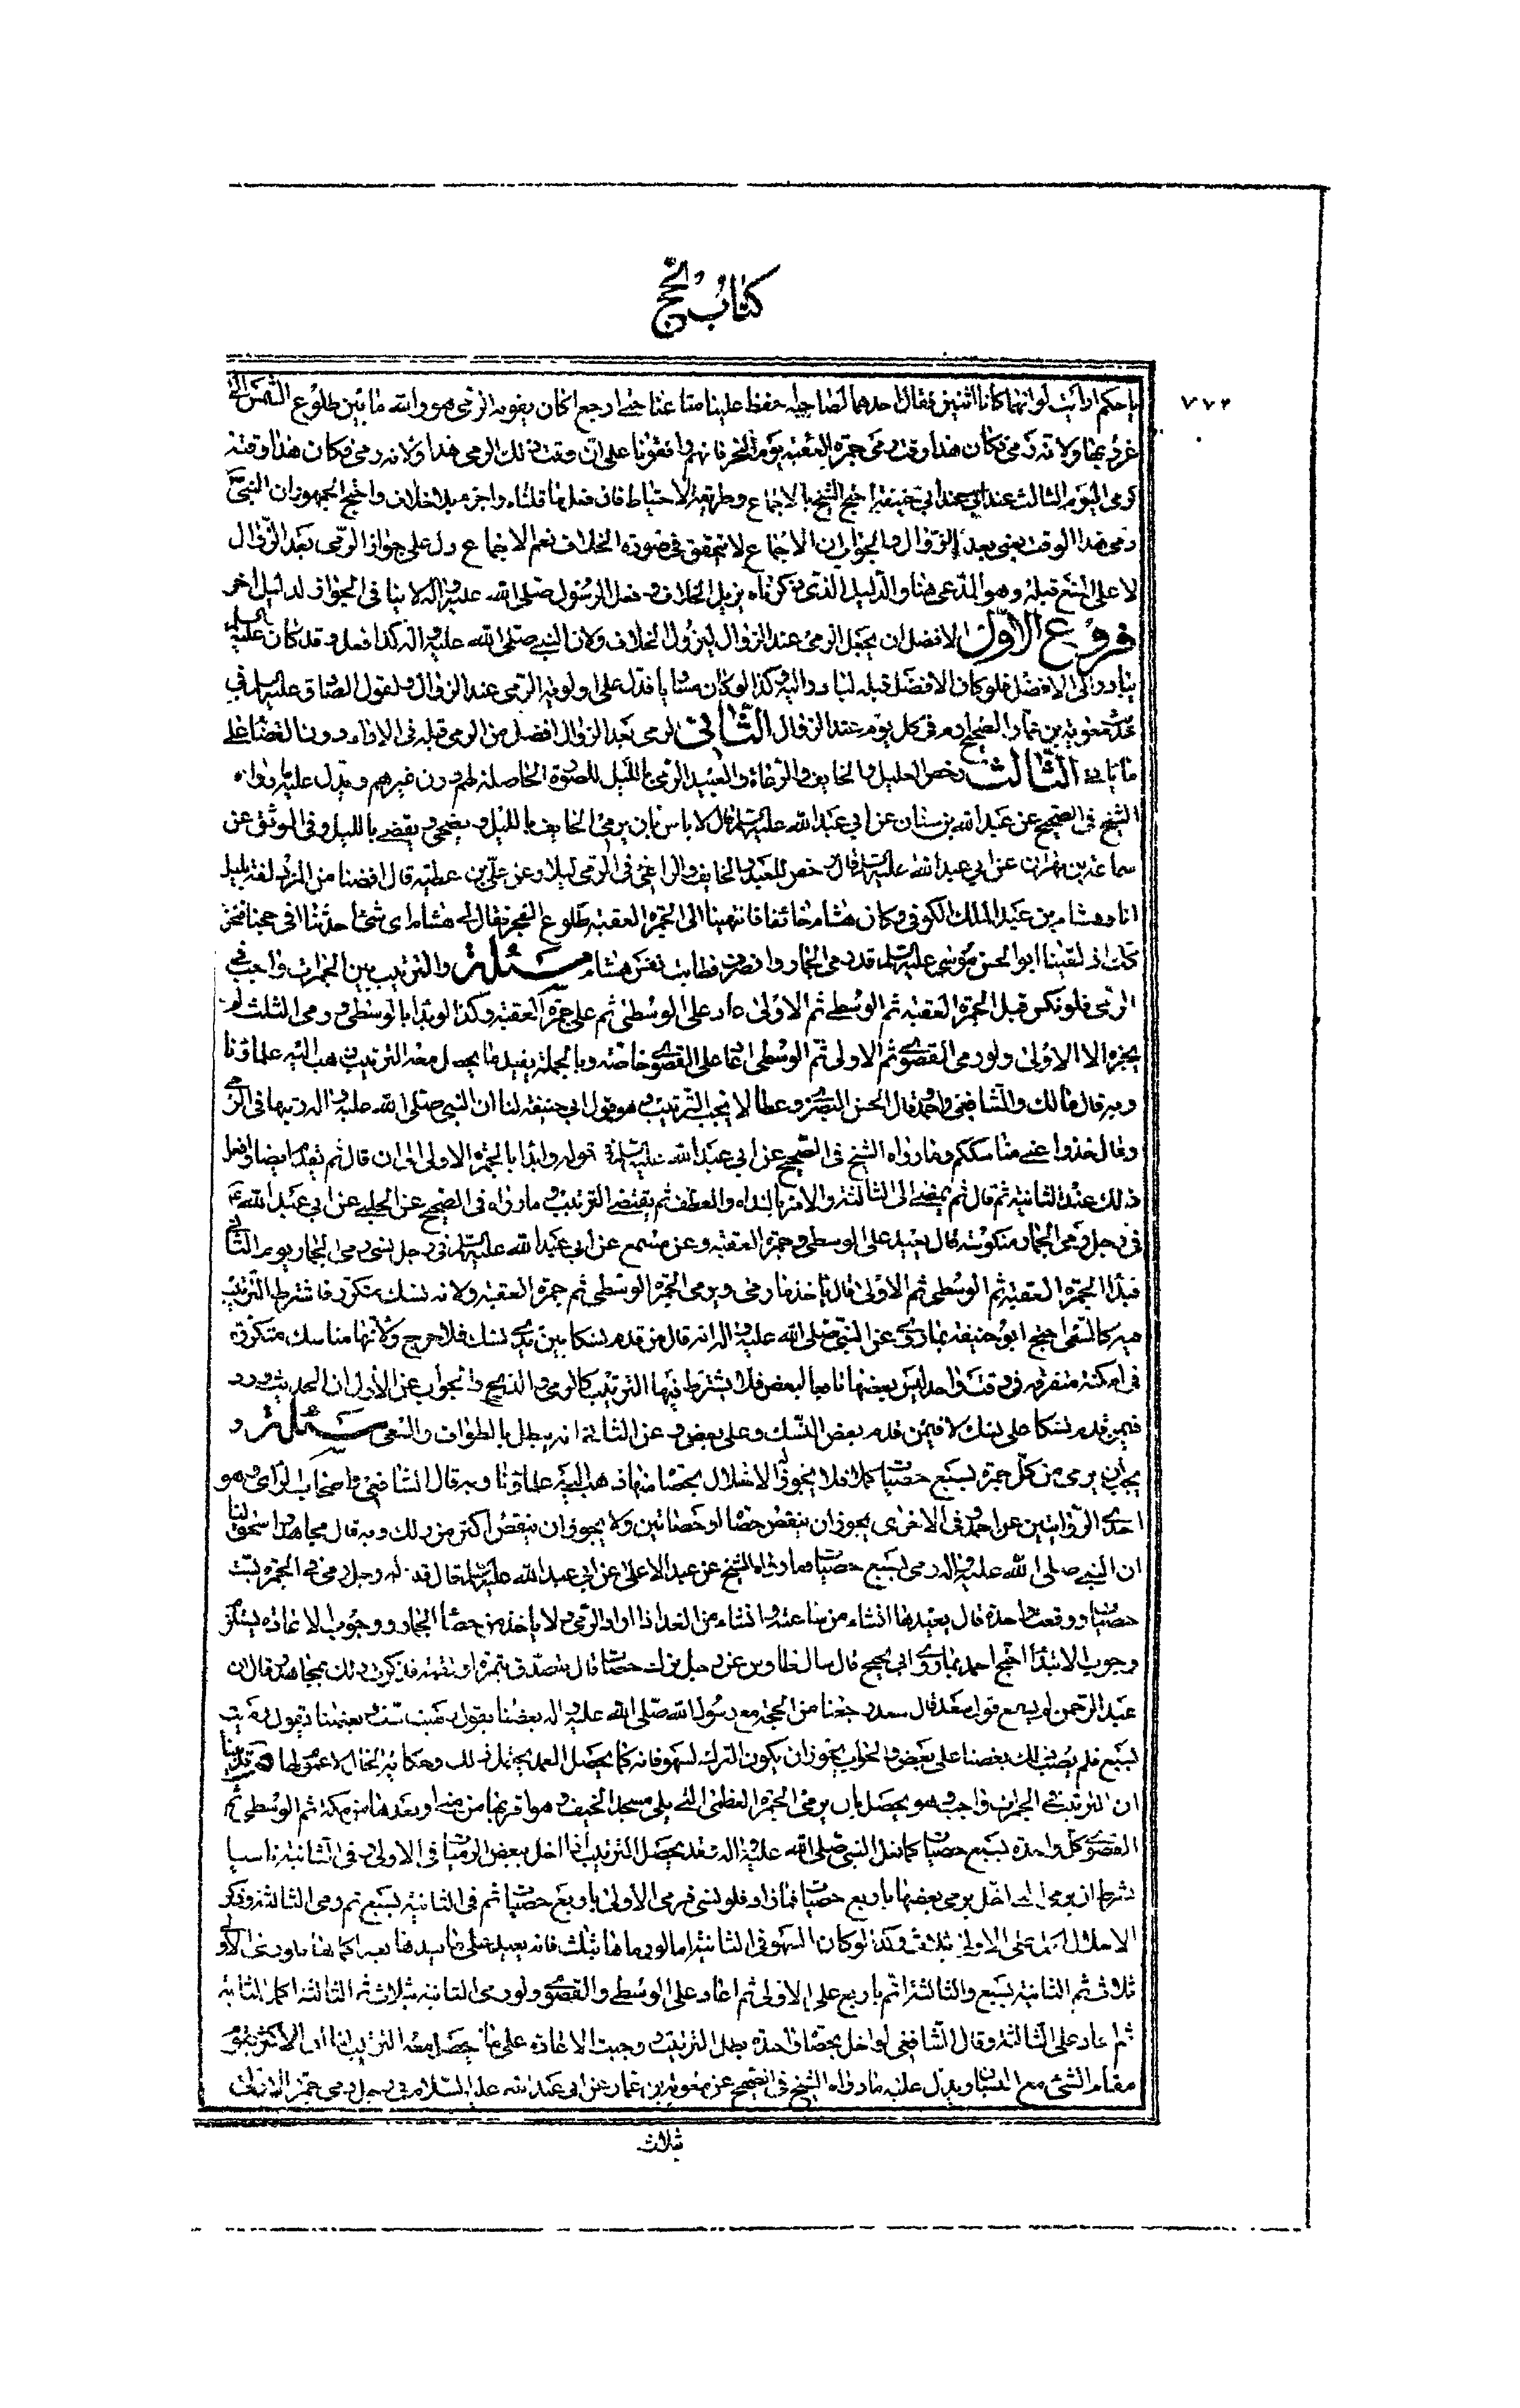 كتاب الحج
٧٧٢
يا حكم ارايت لو انهما كانا اثنين فقال احدهما لصاحبه احفظ علينا متاعنا حتى ارجع اكان يفوته الرمى هو والله ما بين طلوع الشمس الى
غروبها ولانه رمى فكان هذا وقته كرمى جمرة العقبة يوم النحر فانهم وافقونا على ان وقت ذلك الرمى هذا ولانه رمى فكان هذا وقته
كرمى اليوم الثالث عند ابى حنيفة احتج الشيخ بالاجماع وطريقة الاحتياط فان فعل ما قلناه واجزء بلا خلاف واحتج الجمهور ان النبى
رمى هذا الوقت يعنى بعد الزوال والجواب ان الاجماع لا يتحقق فى صورة الخلاف نعم الاجماع دل على جواز الرمى بعد الزوال
لا على المنع قبله وهو المدعى هنا والدليل الذى ذكرناه يزيل الخلاف وفعل الرسول صلى الله عليه واله لا ينافى الجواز لدليل اخر
فروع الاول الافضل ان يجعل الرمى عند الزوال ليزول الخلاف ولان النبى صلى الله عليه واله كذا فعل وقد كان عليه السلم
يبادر الى الافضل فلو كان الافضل قبله لبادر اليه وكذا لو كان مساويا فدل على اولوية الرمى عند الزوال ولقول الصادق عليه السلم فى
حديث معوية بن عمار الصحيح ارم فى كل يوم عند الزوال الثانى الرمى بعد الزوال افضل من الرمى قبله فى الاداء دون القضا على
ما ياتى الثالث رخص للعليل والخايف والرعاة والعبيد الرمى بالليل للضرورة الحاصلة لهم دون غيرهم ويدل عليه ما رواه
الشيخ فى الصحيح عن عبد الله بن سنان عن ابى عبد الله عليه السلم قال لا باس بان يرمى الخايف بالليل ويضحى ويفيض بالليل وفى الموثق عن
سماعة بن مهران عن ابى عبد الله عليه السلم قال رخص للعبد والخايف والراعى فى الرمى ليلا وعن على بن عطية قال افضنا من المزدلفة بليل
انا وهشام بن عبد الملك الكوفى وكان هشام خائفا فانتهينا الى الجمرة العقبة طلوع الفجر فقال لى هشام اى شئ احدثنا فى حجنا فنحن
كذلك اذ لقينا ابو الحسن موسى عليه السلم قد رمى الجمار وانصرف فطابت نفس هشام مسئلة والترتيب بين الجمرات واجب فى
الرمى فلو نكس قبل الجمرة العقبة ثم الوسطى ثم الاولى عاد على الوسطى ثم على جمرة العقبة وكذا لو بدا بالوسطى ورمى الثلث لم
يجزه الا الاولى ولو رمى القصوى ثم الاولى ثم الوسطى اعاد على القصوى خاصة وبالجملة يعيد ما يحصل معه الترتيب ذهب اليه علماؤنا
وبه قال مالك والشافعى واحمد قال الحسن البصرى وعطا لا يجب الترتيب وهو قول ابى حنيفة لنا ان النبى صلى الله عليه واله رتبها فى الرمى
وقال خذوا عنى مناسككم وما رواه الشيخ فى الصحيح عن ابى عبد الله عليه السلم قوله وابدا بالجمرة الاولى الى ان قال ثم تقدم ايضا وافعل
ذلك عند الثانية ثم قال ثم تمضى الى الثالثة والامر بالبداه والعطف ثم يقتضى الترتيب وما رواه فى الصحيح عن الحلبى عن ابى عبد الله ع
فى رجل رمى الجمار منكوسة قال يعيد على الوسطى وجمرة العقبة وعن مسمع عن ابى عبد الله عليه السلم فى رجل نسى رمى الجمار يوم الثانى
فبدا الجمرة العقبة ثم الوسطى ثم الاولى قال ياخذ ما رمى ويرمى الجمرة الوسطى ثم جمرة العقبة ولانه نسك متكرر فاشترط الترتيب
فيه كالسعى احتج ابو حنيفة بما روى عن النبى صلى الله عليه واله انه قال من قدم نسكا بين يدى نسك فلا حرج ولانها مناسك متكررة
فى امكنة متفرقة فى وقت واحد ليس بعضها تابعا لبعض فلا يشترط فيها الترتيب كالرمى والذبح والجواب عن الاول ان الحديث ورد
فيمن قدم نسكا على نسك لا فيمن قدم بعض النسك على بعض وعن الثانى انه يبطل بالطواف والسعى مسئلة و
يجب ان يرمى من كل جمرة بسبع حصيات كملا فلا يجوز الاخلال بحصاة منها ذهب اليه علماؤنا وبه قال الشافعى واصحاب الراى وهو
احدى الروايتين عن احمد وفى الاخرى يجوز ان ينقص حصاة او حصاتين ولا يجوز ان ينقص اكثر من ذلك وبه قال مجاهد واسحق لنا
ان النبى صلى الله عليه واله رمى بسبع حصيات وما رواه الشيخ عن عبد الاعلى عن ابى عبد الله عليه السلم قال قلت له رجل رمى الجمرة بست
حصيات ووقعت واحدة قال يعيدها ان شاء من ساعته وان شاء من الغد اذا اراد الرمى ولا ياخذ من حصا الجمار ووجوب الاعادة يستلزم
وجوب الابتدا احتج احمد بما روى ابى نجيح قال سال طاوس عن رجل ترك حصاة قال يتصدق بتمرة او لقمة فذكرت ذلك لمجاهد فقال ان
عبد الرحمن لم يسمع قول سعد قال سعد رجعنا من الحجة مع رسول الله صلى الله عليه واله بعضنا يقول رميت بست وبعضنا يقول رميت
بسبع فلم يعب ذلك بعضنا على بعض والجواب يجوز ان يكون الترك لسهو فانه كما يحصل العمد يحتمل ذلك وحكاية الحال لا عموم لها قد بينا
ان الترتيب فى الجمرات واجب وهو يحصل بان يرمى الجمرة العظمى التى يلى مسجد الخيف وهو اقربها من منى وابعدها من مكة ثم الوسطى ثم
القصوى كل واحدة بسبع حصيات كما فعل النبى صلى الله عليه واله وقد يحصل الترتيب اذا اخل ببعض الرميات فى الاولى وفى الثانية ناسيا
بشرط ان يرمى التى اخل برمى بعضها باربع حصيات فما زاد فلو نسى فرمى الاولى باربع حصيات ثم فى الثانية بسبع ثم رمى الثالثة وذكر
الاخلال على الاولى بثلاث وكذا لو كان السهو فى الثانية اما لو رماها بثلث فانه يعيد على ما بعدها بعد اكمالها فلو رمى الاولى
ثلاث ثم الثانية بسبع والثالثة اتم باربع على الاولى ثم اعاد على الوسطى والقصوى ولو رمى الثانية بثلاث ثم الثالثة اكمل الثانية
ثم اعاد على الثالثة وقال الشافعى لو اخل بحصاة واحدة بطل الترتيب ووجبت الاعادة على ما يحصل معه الترتيب لنا ان الاكثر يقوم
مقام الشئ مع النسيان ويدل عليه ما رواه الشيخ فى الصحيح عن معوية بن عمار عن ابى عبد الله عليه السلام فى رجل رمى جمرة الثانية
ثلاث